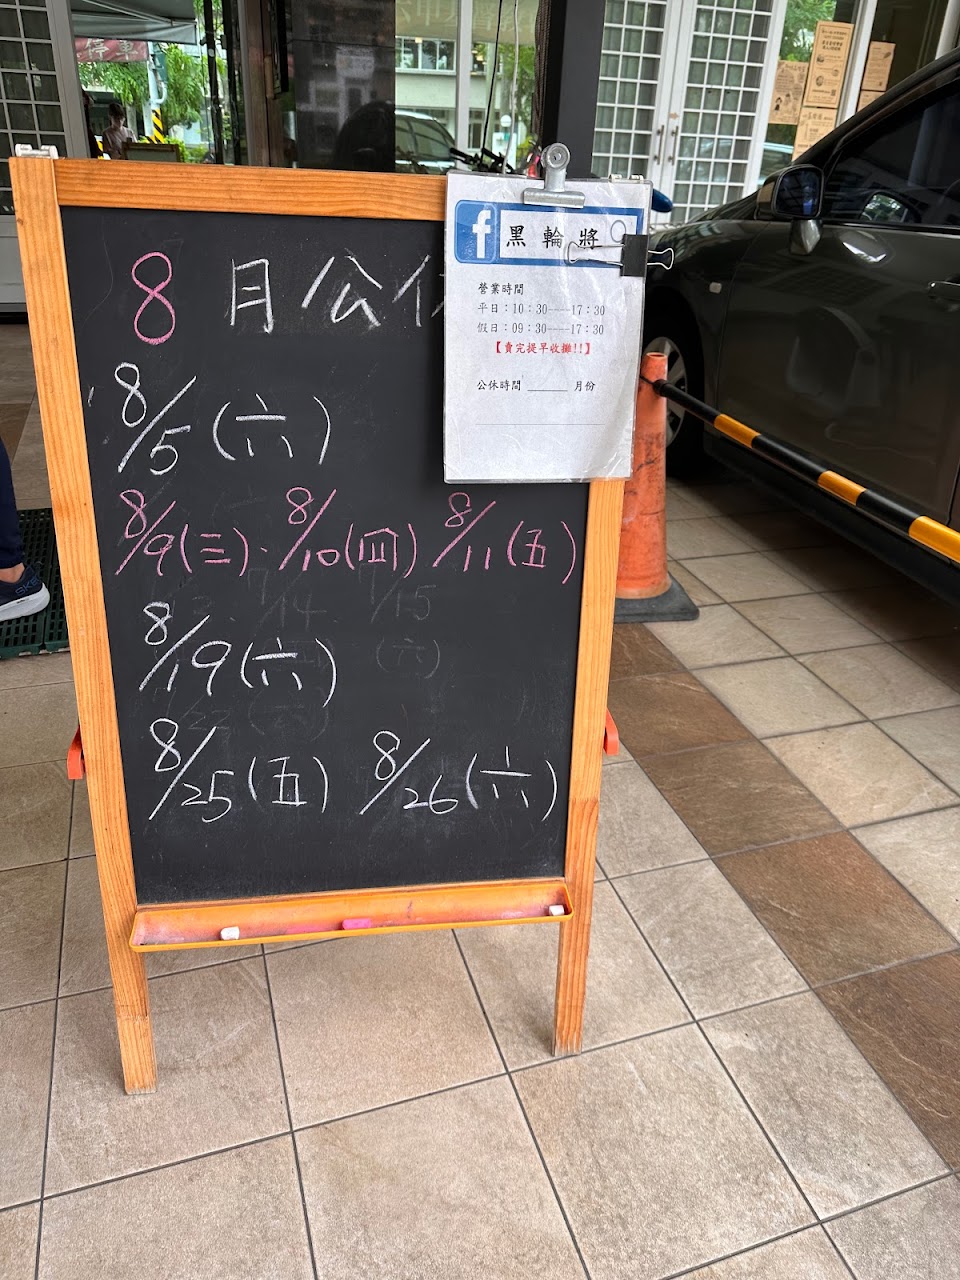 停車
8月公休
8/5(六)
8/9(三)．8/10(四) 8/11(五)
8/19(六)
8/25(五) 8/26(六)
f 黑輪將
營業時間
平日：10：30----17：30
假日：09：30----17：30
【賣完提早收攤!!】
公休時間 ______ 月份
7/14 7/15
(六)